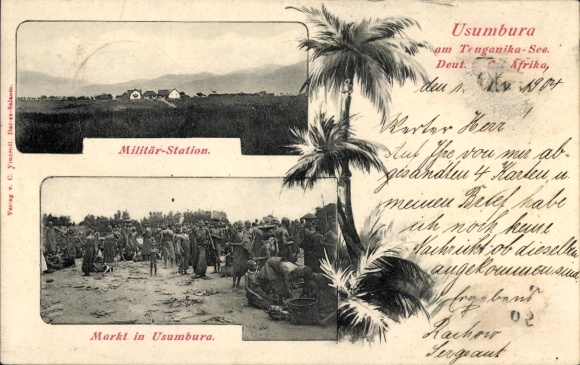 Usumbura
am Tanganika-See.
Deut. Afrika,
den 1904
Militär-Station.
Verlag v. C. Vincenti, Dar-es-Salaam.
Werter Herr
Auf Ihre von mir ab-
gesandten 4 Karten u.
meinen Brief habe
ich noch keine
Nachricht ob dieselben
angekommen sind.
Ergebenst
02
Rachow
Sergeant
Markt in Usumbura.